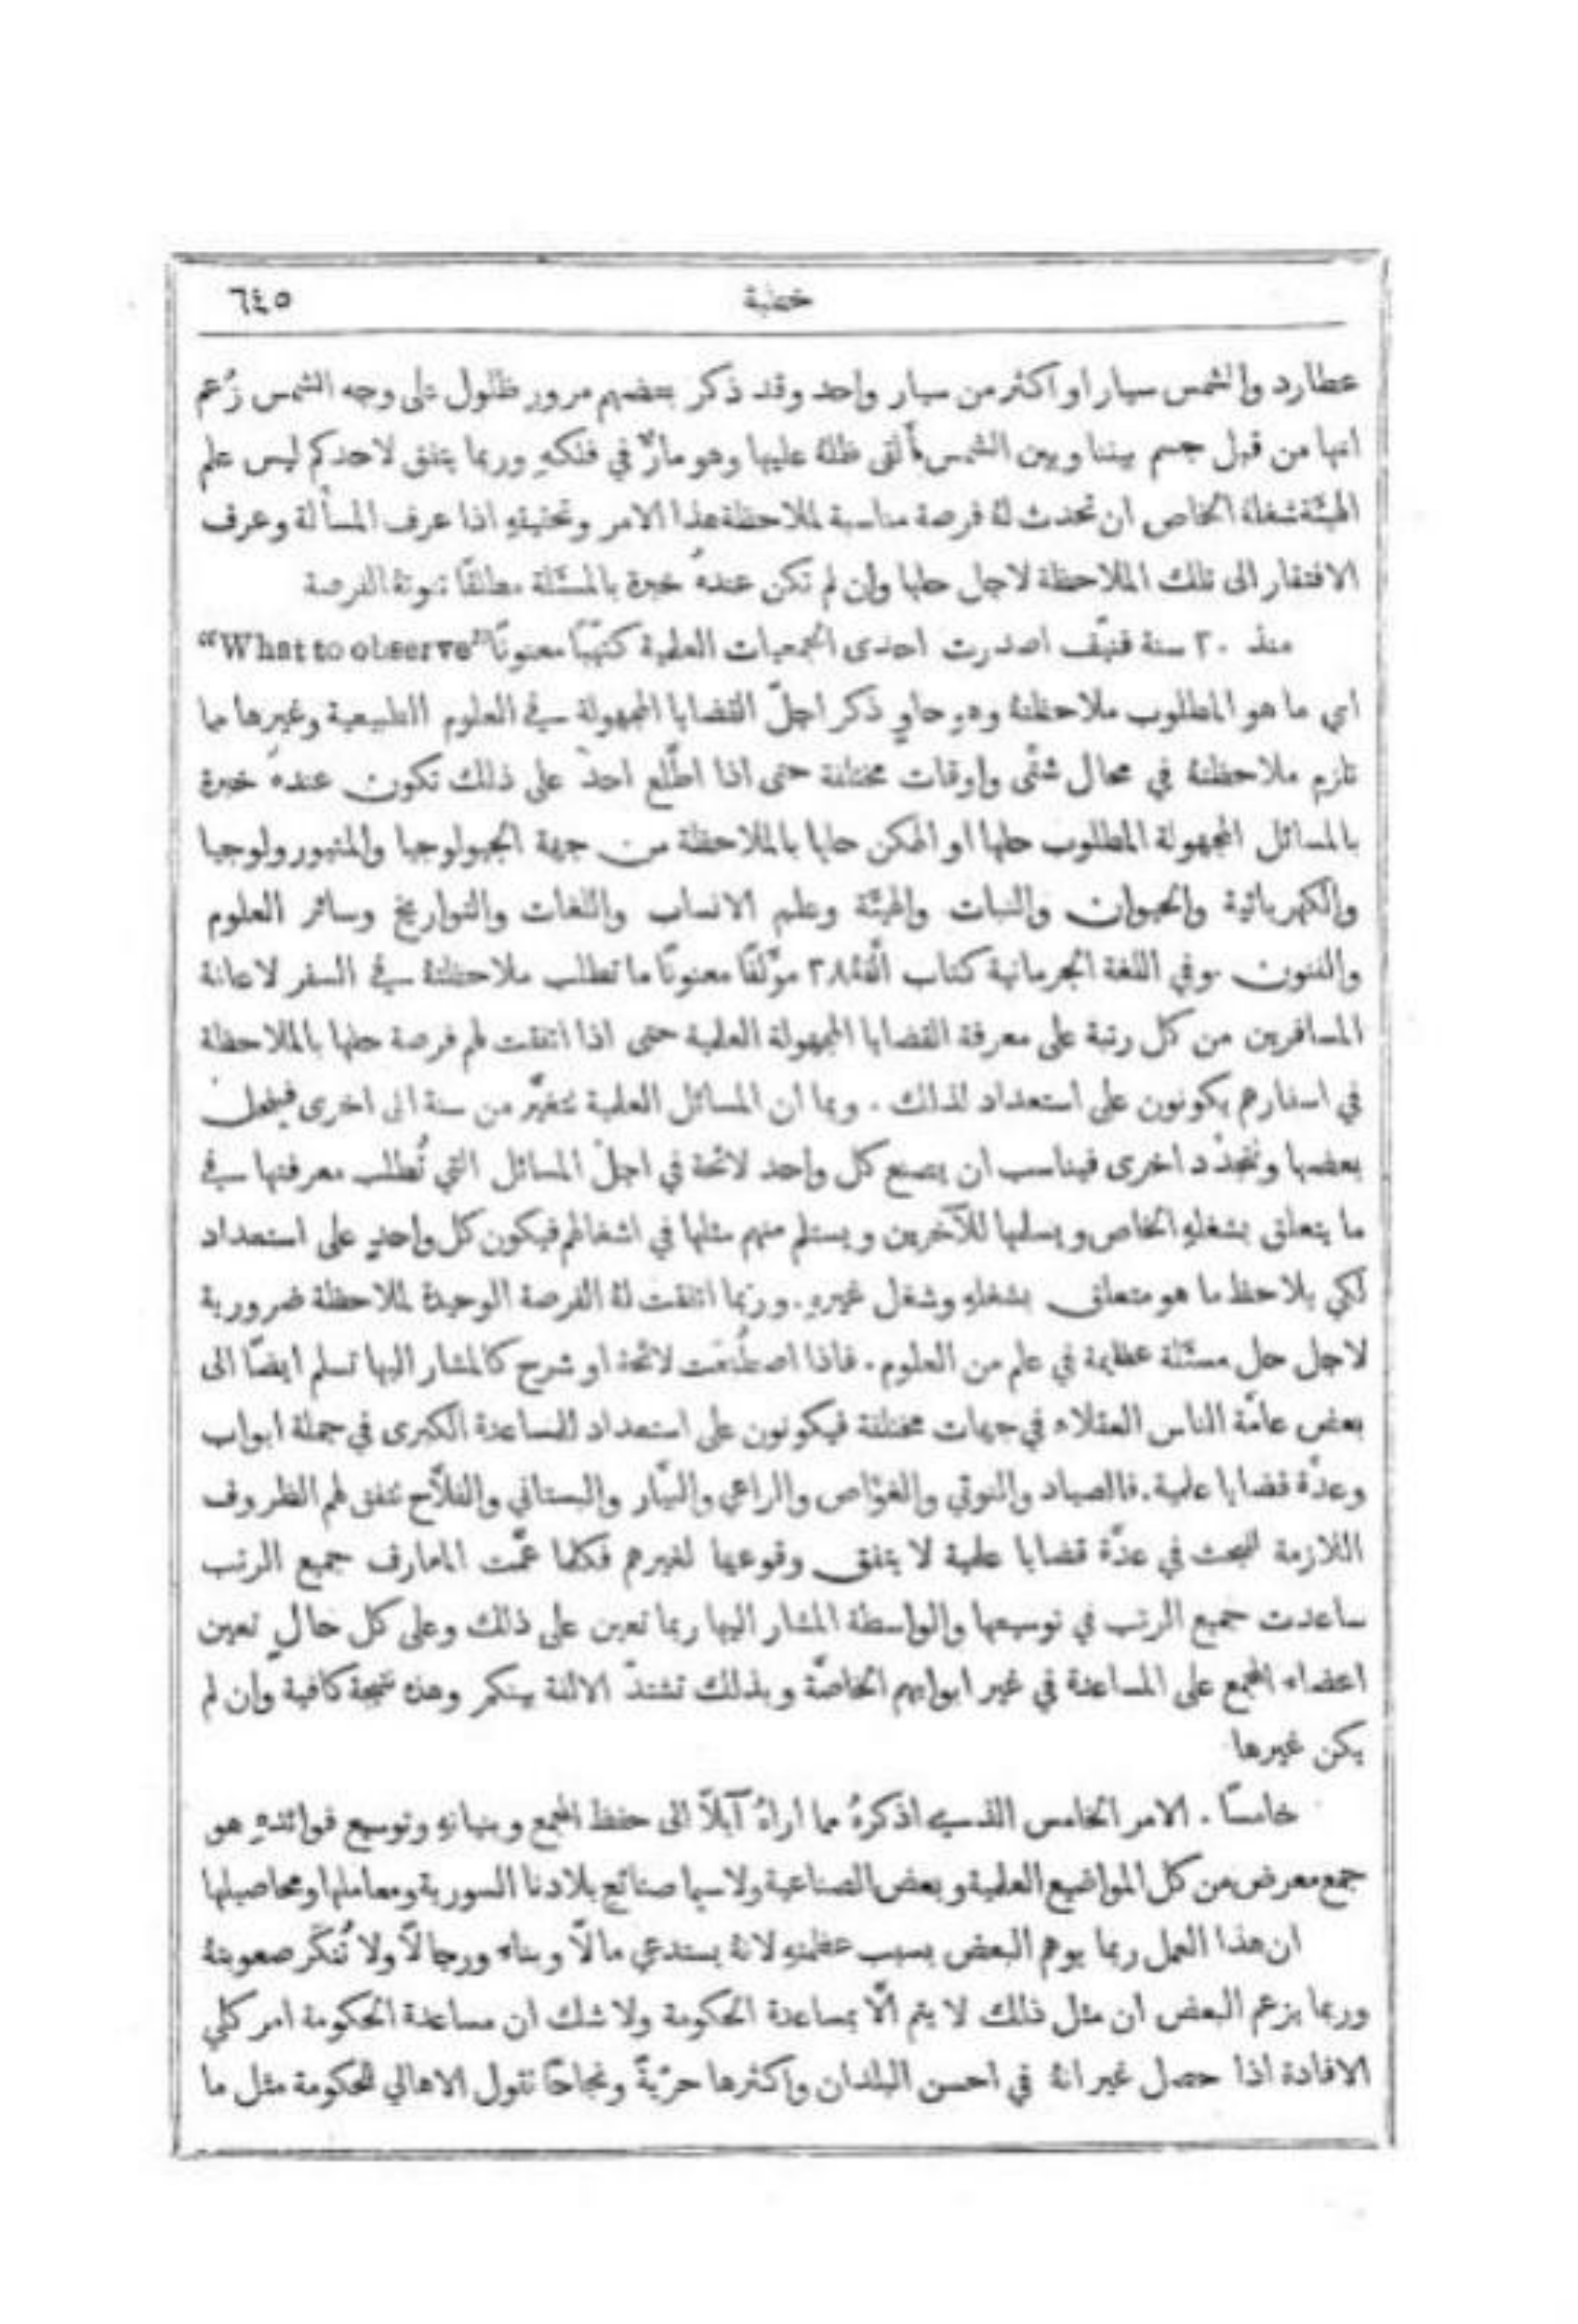 خطبة ٦٤٥
عطارد والشمس سيار او اكثر من سيار واحد وقد ذكر بعضهم مرور ظلول على وجه الشمس زُعم
انها من قبل جسم بيننا وبين الشمس فألقى ظلهُ عليها وهو مارٌّ في فلكهِ وربما يتفق لاحدكم ليس علم
الهيئة شغلهُ الخاص ان تحدث لهُ فرصة مناسبة لملاحظة هذا الامر وتحقيقهِ اذا عرف المسألة وعرف
الافتقار الى تلك الملاحظة لاجل حلها وان لم تكن عندهُ خبرة بالمسئلة مطلقًا تفوتهُ الفرصة
منذ ٢٠ سنة فنيّف اصدرت احدى الجمعيات العلمية كتيّبًا معنونًا "What to observe"
اي ما هو المطلوب ملاحظتهُ وهو حاوٍ ذكر اجلّ القضايا المجهولة في العلوم الطبيعية وغيرها مما
تلزم ملاحظتهُ في محال شتّى واوقات مختلفة حتى اذا اطّلع احد على ذلك تكون عندهُ خبرة
بالمسائل المجهولة المطلوب حلها او الممكن حلها بالملاحظة من جهة الجيولوجيا والمتيورولوجيا
والكهربائية والحيوان والنبات والهيئة وعلم الانساب واللغات والتواريخ وسائر العلوم
والفنون. وفي اللغة الجرمانية كتاب الَّفهُ ٢٨ مؤَلفًا معنونًا ما تطلب ملاحظتهُ في السفر لاعانة
المسافرين من كل رتبة على معرفة القضايا المجهولة العلمية حتى اذا اتفقت لهم فرصة حلها بالملاحظة
في اسفارهم يكونون على استعداد لذلك. وبما ان المسائل العلمية تتغيَّر من سنة الى اخرى فينحل
بعضها وتتجدّد اخرى فيناسب ان يصنع كل واحد لائحة في اجلّ المسائل التي تُطلب معرفتها في
ما يتعلق بشغلهِ الخاص ويسلمها للآخرين ويستلم منهم مثلها في اشغالهم فيكون كل واحدٍ على استعداد
لكي يلاحظ ما هو متعلق بشغلهِ وشغل غيرهِ. وربّما اتفقت لهُ الفرصة الوحيدة لملاحظة ضرورية
لاجل حل مسئلة عظيمة في علم من العلوم. فاذا اصطُنعت لائحة او شرح كالمشار اليها تسلم ايضًا الى
بعض عامّة الناس العقلاء في جهات مختلفة فيكونون على استعداد للمساعدة الكبرى في جملة ابواب
وعدّة قضايا علمية. فالصياد والنوتي والغوّاص والراعي والبيّار والبستاني والفلّاح تتفق لهم الظروف
اللازمة للبحث في عدّة قضايا علمية لا يتفق وقوعها لغيرهم فكلما عمَّت المعارف جميع الرتب
ساعدت جميع الرتب في توسيعها والواسطة المشار اليها ربما تعين على ذلك وعلى كل حالٍ تعين
اعضاء المجمع على المساعدة في غير ابوابهم الخاصَّة وبذلك تشتدّ الالفة بينكم وهذه نتيجة كافية وان لم
يكن غيرها
خامسًا. الامر الخامس الذي اذكرهُ مما اراهُ آيلًا الى حفظ المجمع وبنيانهِ وتوسيع فوائدهِ هو
جمع معرض من كل المواضيع العلمية وبعض الصناعية ولاسيما صنائع بلادنا السورية ومعاملها ومحاصيلها
ان هذا العمل ربما يوهم البعض بسبب عظمتهِ لانهُ يستدعي مالًا وبناء ورجالًا ولا تُنكَر صعوبتهُ
وربما يزعم البعض ان مثل ذلك لا يتم الّا بمساعدة الحكومة ولا شك ان مساعدة الحكومة امر كلي
الافادة اذا حصل غير انهُ في احسن البلدان واكثرها حرّيةً ونجاحًا تقول الاهالي للحكومة مثل ما